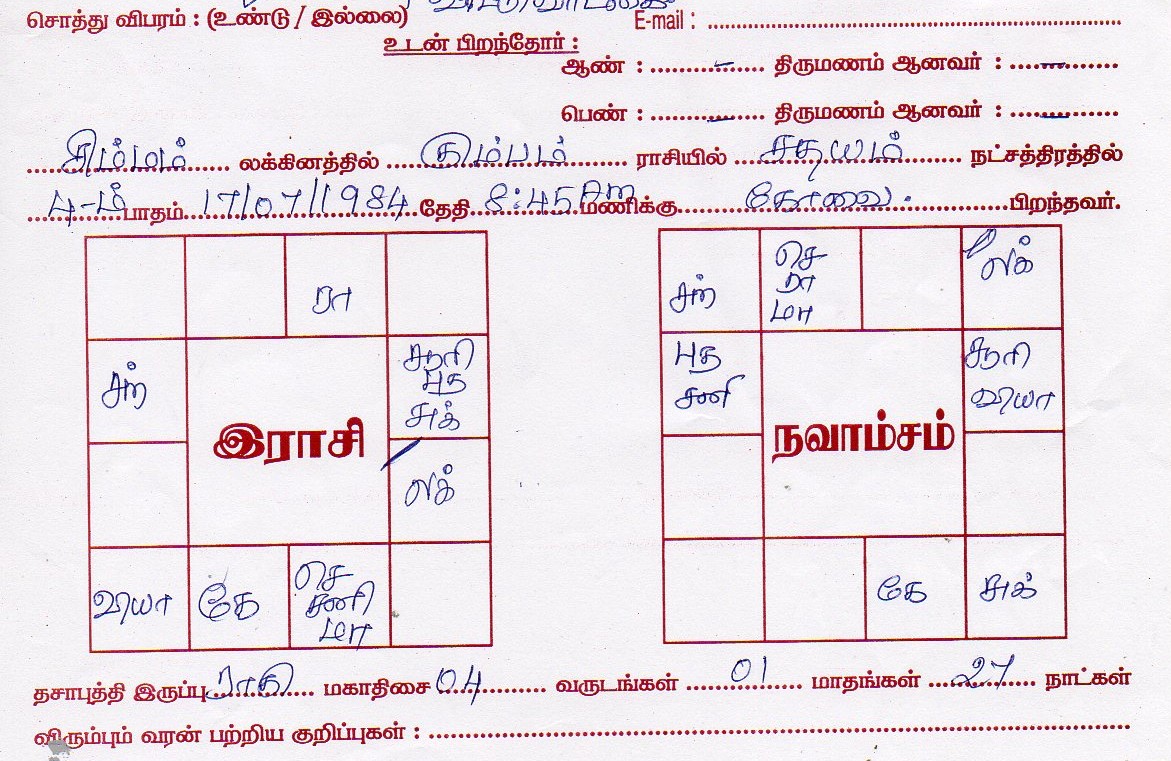 சொத்து விபரம் : (உண்டு / இல்லை) E-mail : ........
உடன் பிறந்தோர் :
ஆண் : ....–.... திருமணம் ஆனவர் : ....–....
பெண் : ....–.... திருமணம் ஆனவர் : ....–....
சிம்மம் லக்கினத்தில் கும்பம் ராசியில் சதயம் நட்சத்திரத்தில்
4-ம் பாதம் 17/07/1984 தேதி 8:45 Am மணிக்கு கோவை. பிறந்தவர்.
ரா
சந்
சூரி
புத
சுக்
இராசி
லக்
வியா
கே
செ
சனி
மா
சந்
செ
ரா
மா
லக்
புத
சனி
சூரி
வியா
நவாம்சம்
கே
சுக்
தசாபுத்தி இருப்பு ராகு மகாதிசை 04 வருடங்கள் 01 மாதங்கள் 27 நாட்கள்
விரும்பும் வரன் பற்றிய குறிப்புகள் : ........